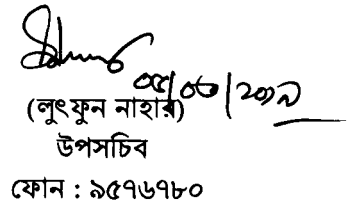 ০৫/০৩/২০১৯
(লুৎফুন নাহার)
উপসচিব
ফোন : ৯৫৭৬৭৮০